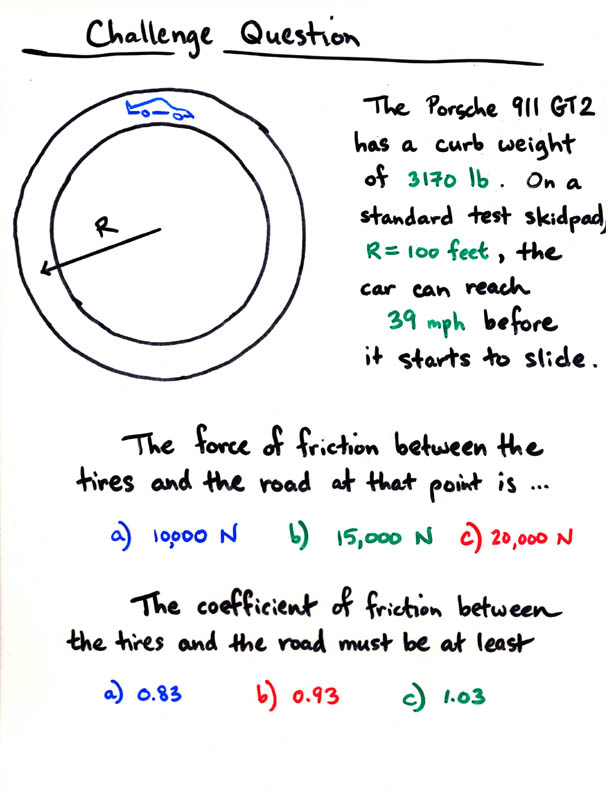 Challenge Question
The Porsche 911 GT2
has a curb weight
of 3170 lb. On a
standard test skidpad,
R = 100 feet, the
car can reach
39 mph before
it starts to slide.
R
The force of friction between the
tires and the road at that point is ...
a) 10,000 N b) 15,000 N c) 20,000 N
The coefficient of friction between
the tires and the road must be at least
a) 0.83 b) 0.93 c) 1.03